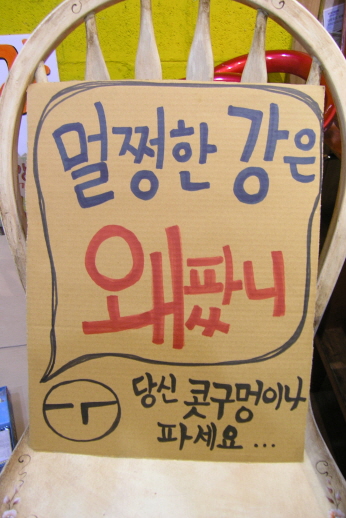 멀쩡한 강은
왜팠니
당신 콧구멍이나
파세요 ...